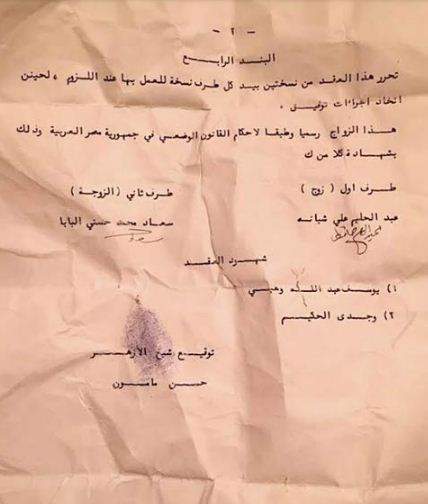 - ٢ -
البند الرابع
تحرر هذا العقد من نسختين بيد كل طرف نسخة للعمل بها عند اللزوم ، لحين
اتخاذ اجراءات توفيق ،
هذا الزواج رسميا وطبقا لاحكام القانون الوضعي في جمهورية مصر العربية وذلك
بشهادة كلا من ك
طرف اول ( زوج )
طرف ثاني ( الزوجة )
عبد الحليم علي شبانه
سعاد محمد حسني البابا
سعاد
شهود العقد
١) يوسف عبد الله وهبي
٢) وجدى الحكيم
توقيع شيخ الازهر
حسن مامون